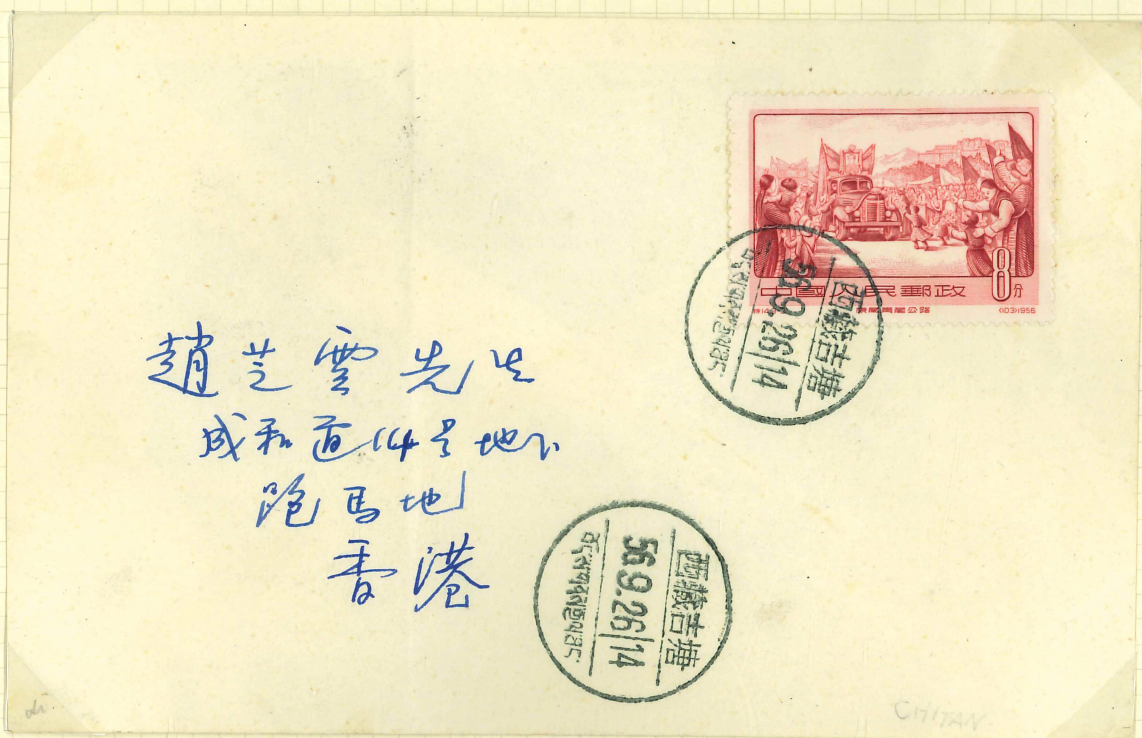 8分
中國人民郵政
特14
康藏青藏公路
(103)1956
西藏吉塘
56.9.26|14
趙芝雲先生
成和道14号地下
跑馬地
香港
西藏吉塘
56.9.26|14
CHITAN